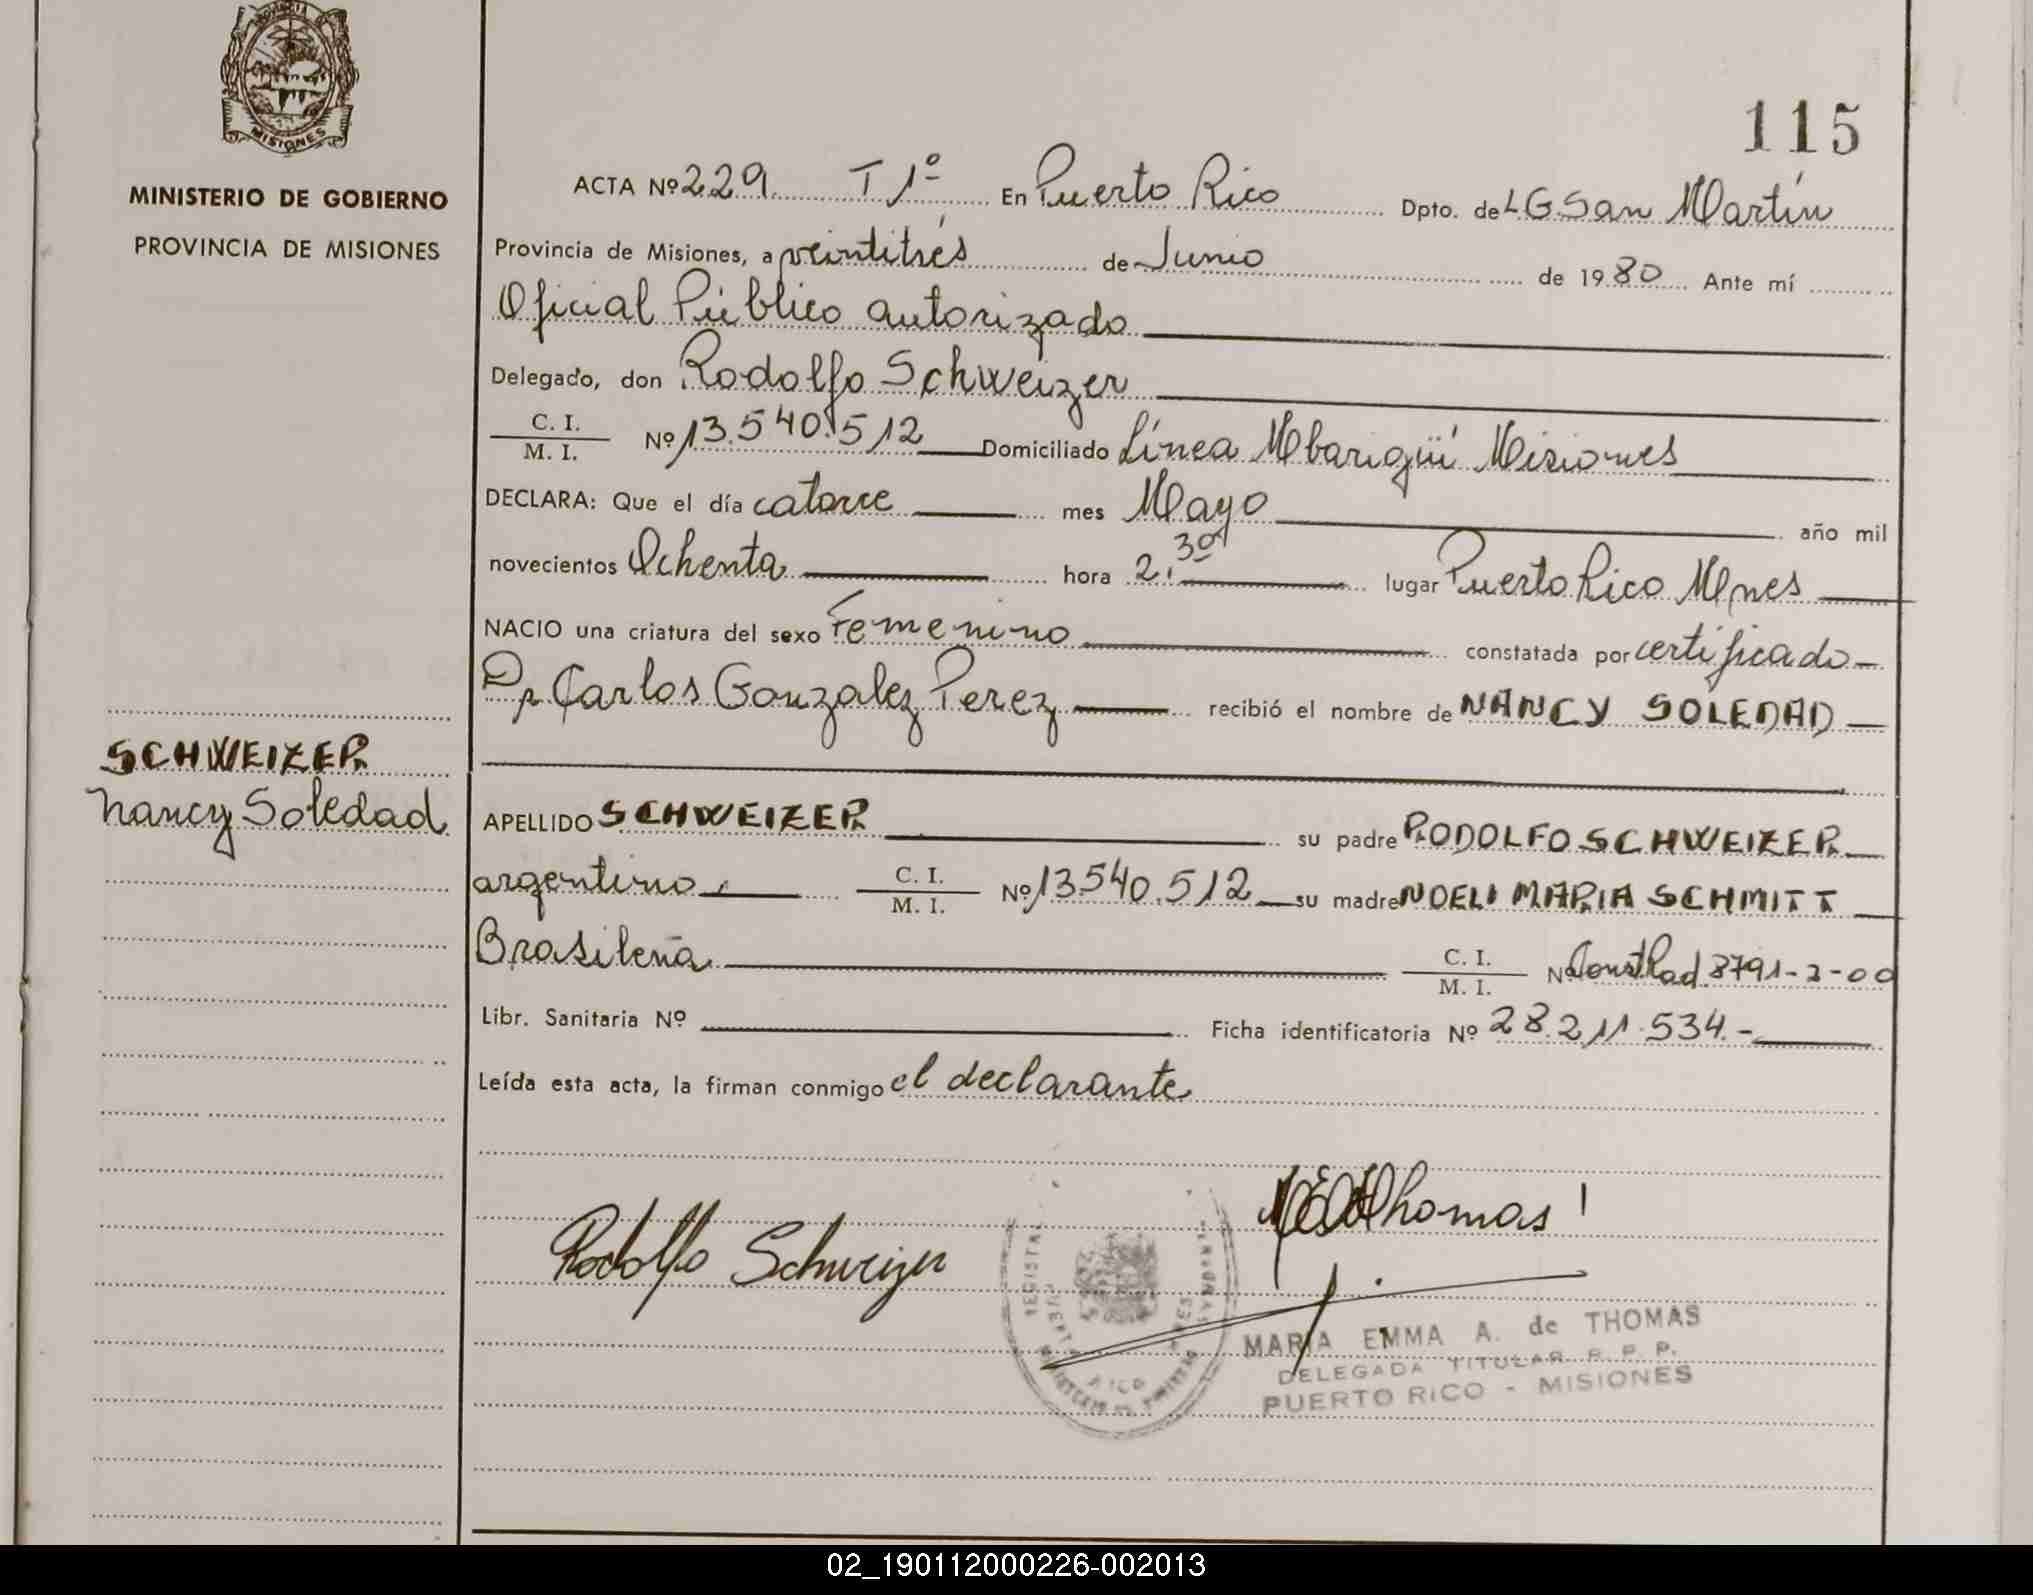 MISIONES
MINISTERIO DE GOBIERNO
PROVINCIA DE MISIONES
SCHWEIZER
Nancy Soledad
115
ACTA Nº 229 T 1º En Puerto Rico Dpto. de L G San Martín
Provincia de Misiones, a veintitrés de Junio de 1980 Ante mí
Oficial Público autorizado
Delegado, don Rodolfo Schweizer
C. I.
M. I. Nº 13.540.512 Domiciliado Línea Mbarigüí Misiones
DECLARA: Que el día catorce mes Mayo año mil
novecientos Ochenta hora 2,30 lugar Puerto Rico Mnes
NACIO una criatura del sexo Femenino constatada por certificado
Dr Carlos Gonzalez Perez recibió el nombre de NANCY SOLEDAD
APELLIDO SCHWEIZER su padre RODOLFO SCHWEIZER
argentino C. I.
M. I. Nº 13.540.512 su madre NOELI MARIA SCHMITT
Brasileña C. I.
M. I. Nº Const Rad 8791-2-00
Libr. Sanitaria Nº Ficha identificatoria Nº 28.211.534.-
Leída esta acta, la firman conmigo el declarante
Rodolfo Schweizer
Thomas
MARIA EMMA A. de THOMAS
DELEGADA TITULAR R. P. P.
PUERTO RICO - MISIONES
02_190112000226-002013